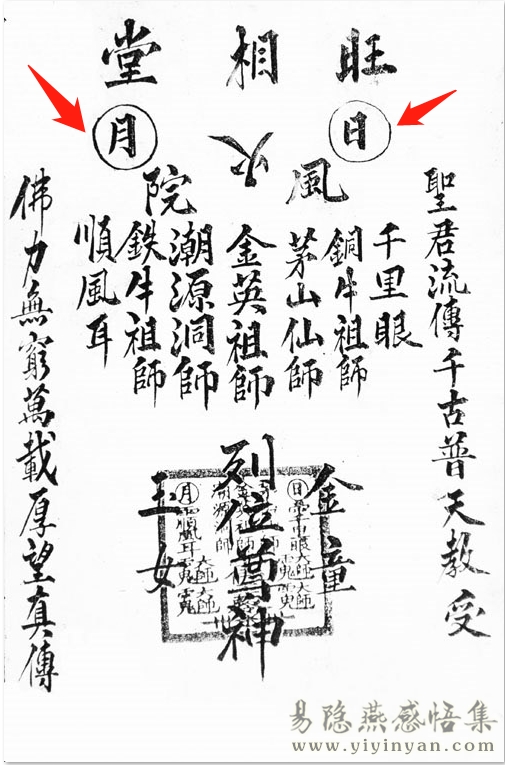 旺相堂
日
月
風火院
聖君流傳千古普天教受
千里眼
銅牛祖師
茅山仙師
金英祖師
潮源洞師
鉄牛祖師
順風耳
金童
列位尊神
玉女
佛力無窮萬載厚望真傳
易隐燕感悟集
www.yiyinyan.com